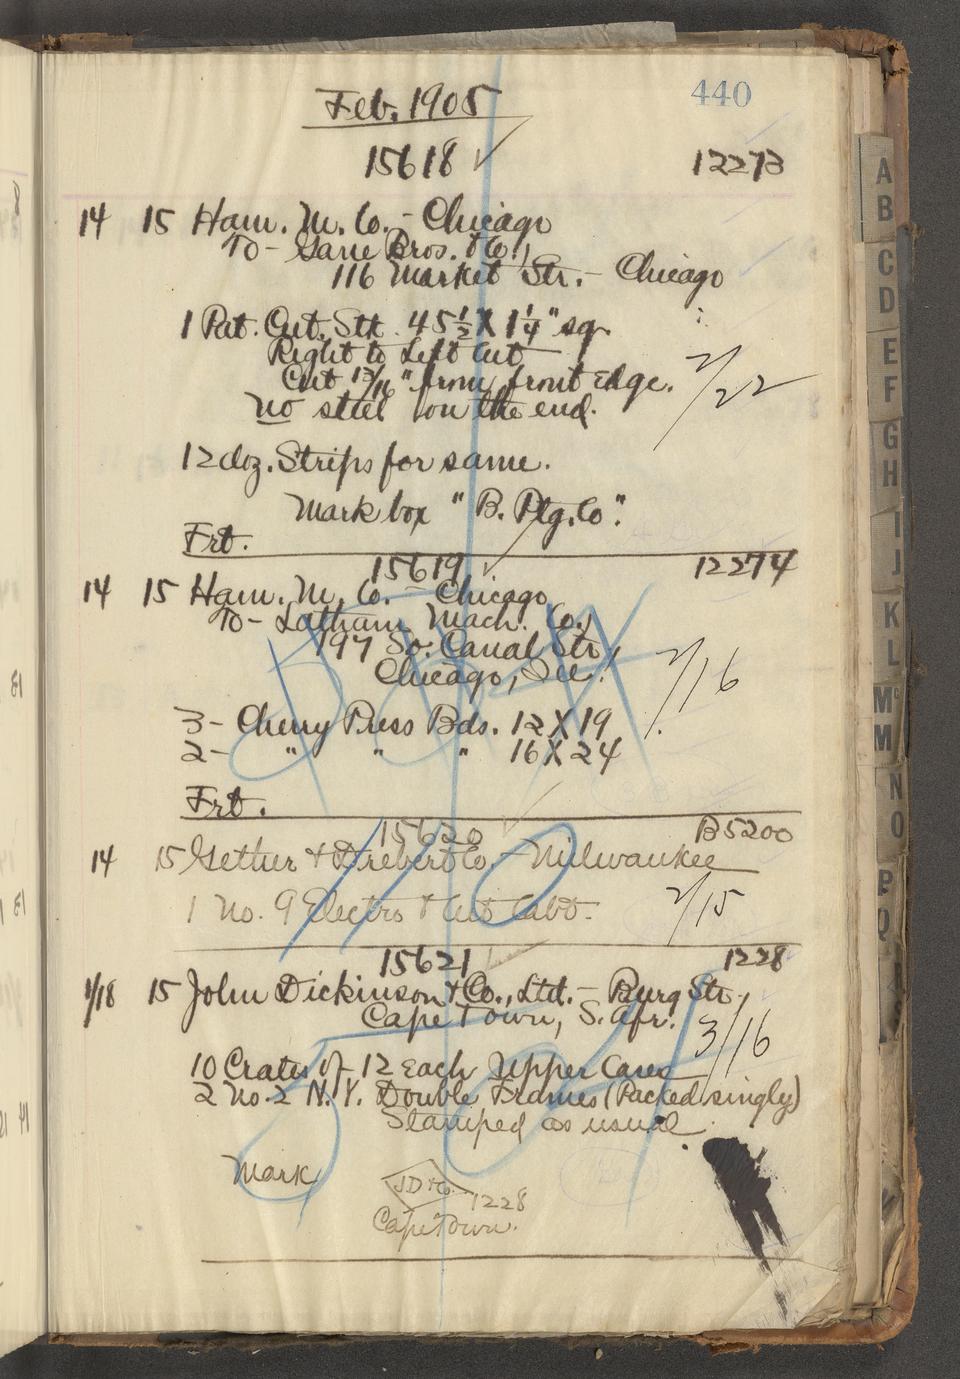 440
Feb. 1905
15618 ✓ 12273
14 15 Ham. M. Co. - Chicago
To - Gane Bros. & Co.,
116 Market Str. - Chicago
1 Pat. Cut. Stk. 45 1/2 X 1 1/4" sq.
Right to Left Cut
Cut 13/16" from front edge.
No steel on the end.
2/22
12 doz. Strips for same.
Mark box "B. Ptg. Co".
Frt.
15619 ✓ 12274
14 15 Ham. M. Co. - Chicago
To - Latham Mach. Co.,
197 So. Canal Str,
Chicago, Ill.
2/16
3 - Cherry Press Bds. 12 X 19
2 - " " " 16 X 24
Frt.
15620 ✓ B5200
14 15 Gether & Drebert Co. - Milwaukee
1 No. 9 Electro & Cut Cabt.
2/15
15621 ✓ 1228
1/18 15 John Dickinson & Co., Ltd. - Burg Str,
Cape Town, S. Afr.
3/16
10 Crates of 12 Each Upper Cases
2 No. 2 N.Y. Double Frames (Packed singly)
Stamped as usual.
Mark
JD & Co. 1228
Cape Town.
A
B
C
D
E
F
G
H
I
J
K
L
Mc
M
N
O
P
Q